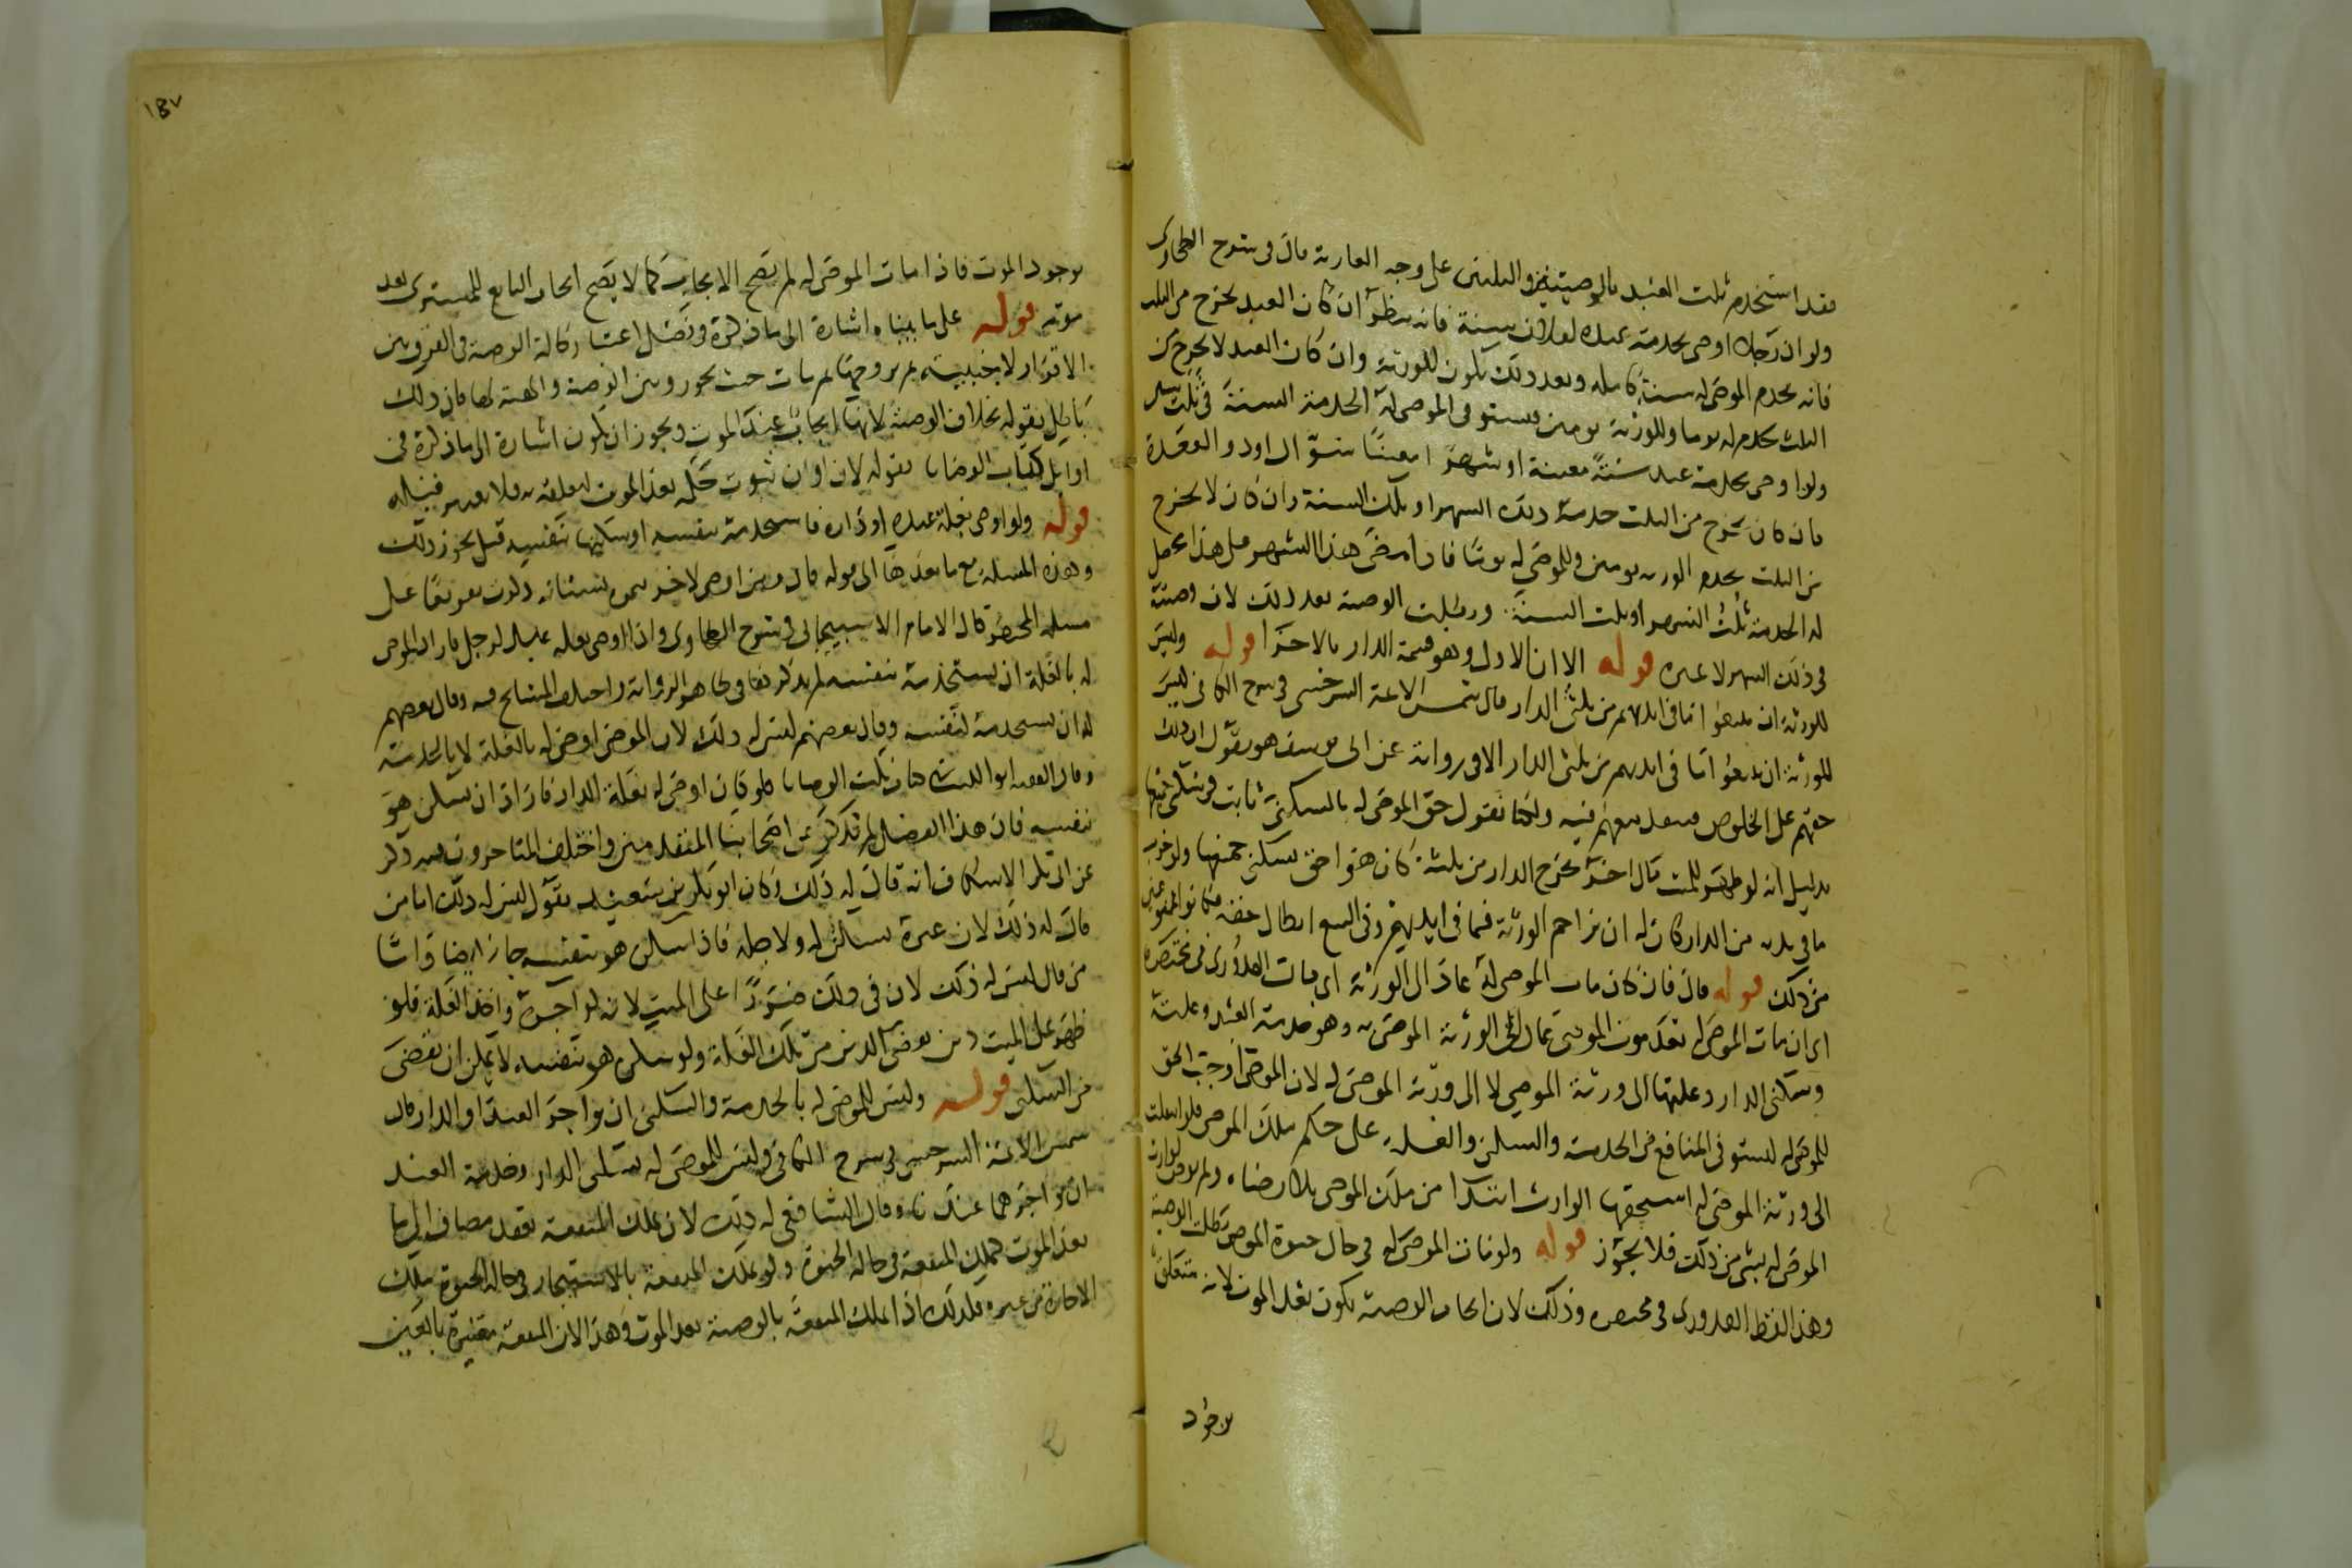 فقد استخدم ثلث العبد بالوصيتين والثلثين على وجه العارية قال في شرح الطحاوي
ولو ان رجلا اوصى بخدمة عبده لفلان سنة فانه ينظر ان كان العبد يخرج من الثلث
فانه يخدم الموصى له سنة كاملة وبعد ذلك يكون للورثة وان كان العبد لا يخرج من
الثلث يخدم له يوما وللورثة يومين فيستوفي الموصى له الخدمة السنة في ثلث سنين
ولو اوصى بخدمة عبده سنة معينة او شهرا معينا
فان كان يخرج من الثلث خدمة ذلك الشهر او تلك السنة وان كان لا يخرج
من الثلث يخدم الورثة يومين وللموصى له يوما فاذا مضى هذا الشهر على هذا يحصل
له الخدمة ثلث الشهر او ثلث السنة وبطلت الوصية بعد ذلك لان وصيته
في ذلك الشهر لا غيره قوله الا ان الاول وهو قسمة الدار بالاجزا قوله وليس
للورثة ان يبيعوا ما في ايديهم من ثلثي الدار قال شمس الائمة السرخسي في شرح الكافي ليس
للورثة ان يبيعوا ما في ايديهم من ثلثي الدار الا في رواية عن ابي يوسف هو يقول ان ذلك
حقهم على الخلوص فينفذ بيعهم فيه ولكنا نقول حق الموصى له بالسكنى ثابت في سكنى جميعها
بدليل انه لو ظهر للميت مال اخر يخرج الدار من ثلثه كان هو احق بسكنى جميعها ولو خرب
ما في يده من الدار كان له ان يزاحم الورثة فيما في ايديهم وفي البيع ابطال حقه فكانوا ممنوعين
من ذلك قوله قال فان كان مات الموصى له عاد الى الورثة اي قال القدوري في مختصره
اي ان مات الموصى له بعد موت الموصي عاد الى الورثة الموصى به وهو خدمة العبد وغلته
وسكنى الدار وغلتها الى ورثة الموصي لا الى ورثة الموصى له لان الموصي اوجب الحق
للموصى له ليستوفي المنافع من الخدمة والسكنى والغلة على حكم ملك الموصي فلو انتقلت
الى ورثة الموصى له استحقها الوارث ابتدا من ملك الموصي بلا رضاه ولم يوص لوارث
الموصى له بشي من ذلك فلا يجوز قوله ولو مات الموصى له في حال حيوة الموصي بطلت الوصية
وهذا لفظ القدوري في مختصره وذلك لان ايجاب الوصية يكون بعد الموت لانه متعلق
بوجود
١٥٧
بوجود الموت فاذا مات الموصى له لم يصح الايجاب كما لا يصح ايجاب البايع للمشتري بعد
موته قوله على ما بيناه اشارة الى ما ذكره في فصل اعتبار حالة الوصية في الفرق بين
الاقرار لاجنبية ثم تزوجها ثم مات حيث يجوز وبين الوصية والهبة لها فان ذلك
باطل بقوله بخلاف الوصية لانها ايجاب عند الموت ويجوز ان يكون اشارة الى ما ذكره في
اوايل كتاب الوصايا بقوله لان اوان ثبوت حكمه بعد الموت لتعلقه به فلا يعتبر قبله
قوله ولو اوصى بغلة عبده او داره فاستخدمه بنفسه او سكنها بنفسه قيل يجوز ذلك
وهذه المسئلة مع ما بعدها الى قوله قال ومن اوصى لاخر
مسئلة المختصر قال الامام الاسبيجابي في شرح الطحاوي واذا اوصى بغلة عبده لرجل فاراد الموصى
له بالغلة ان يستخدمه بنفسه لم يذكر هذا في ظاهر الرواية واختلف المشايخ فيه وقال بعضهم
له ان يستخدمه لنفسه وقال بعضهم ليس له ذلك لان الموصي اوصى له بالغلة لا بالخدمة
وقال الفقيه ابو الليث في كتاب نكت الوصايا فلو كان اوصى له بغلة الدار فاراد ان يسكن هو
بنفسه فان هذا الفصل لم يذكر عن اصحابنا المتقدمين واختلف المتاخرون فيه ذكر
عن ابي بكر الاسكاف انه قال له ذلك وكان ابو بكر بن سعيد يقول ليس له ذلك اما من
قال له ذلك لان غيره يسكن له ولاجله فاذا سكن هو بنفسه جاز ايضا واما
من قال ليس له ذلك لان في ذلك ضررا على الميت لانه لو آجره واخذ الغلة فلو
ظهر على الميت دين يقضى الدين من تلك الغلة ولو سكن هو بنفسه لا يمكن ان يقضى
من السكنى قوله وليس للموصى له بالخدمة والسكنى ان يواجر العبد او الدار قال
شمس الائمة السرخسي في شرح الكافي وليس للموصى له بسكنى الدار وخدمة العبد
ان يواجرهما عندنا وقال الشافعي له ذلك لان تملك المنفعة بعقد مضاف الى ما
بعد الموت كتملك المنفعة في حالة الحيوة ولو تملك المنفعة بالاستيجار في حالة الحيوة ملك
الاجارة من غيره فكذلك اذا تملك المنفعة بالوصية بعد الموت وهذا لان المنفعة معتبرة بالعين